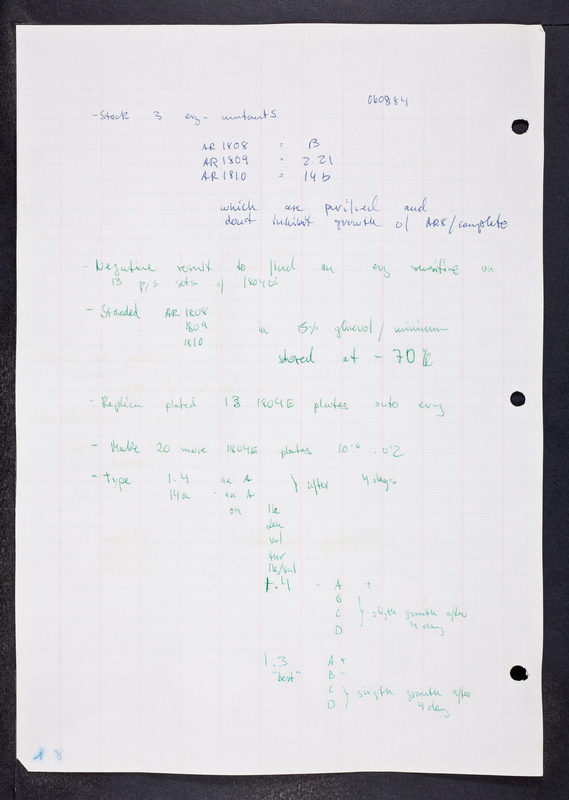 060884
- Stock 3 erg- mutants
AR 1808 = B
AR 1809 = 2.21
AR 1810 = 14b
which are purified and
dont inhibit growth of AR8/complete
- Negative result to find an erg sensitive on
13 p/s sets of 1804E
- Stocked AR 1808
1809 in 15% glycerol / minimum
1810
stored at -70°C
- Replica plated 13 1804E plates onto erg
- Make 20 more 1804E plates 10⁻⁶ .02
- Type 1.4 an A } after 4 days
14a - an A
on Ile
leu
val
thr
Ile/Val
1.4 - A +
B
C } sligth growth after
D 4 day
1.3 A +
"best" B -
C } sligth growth after
D 4 day